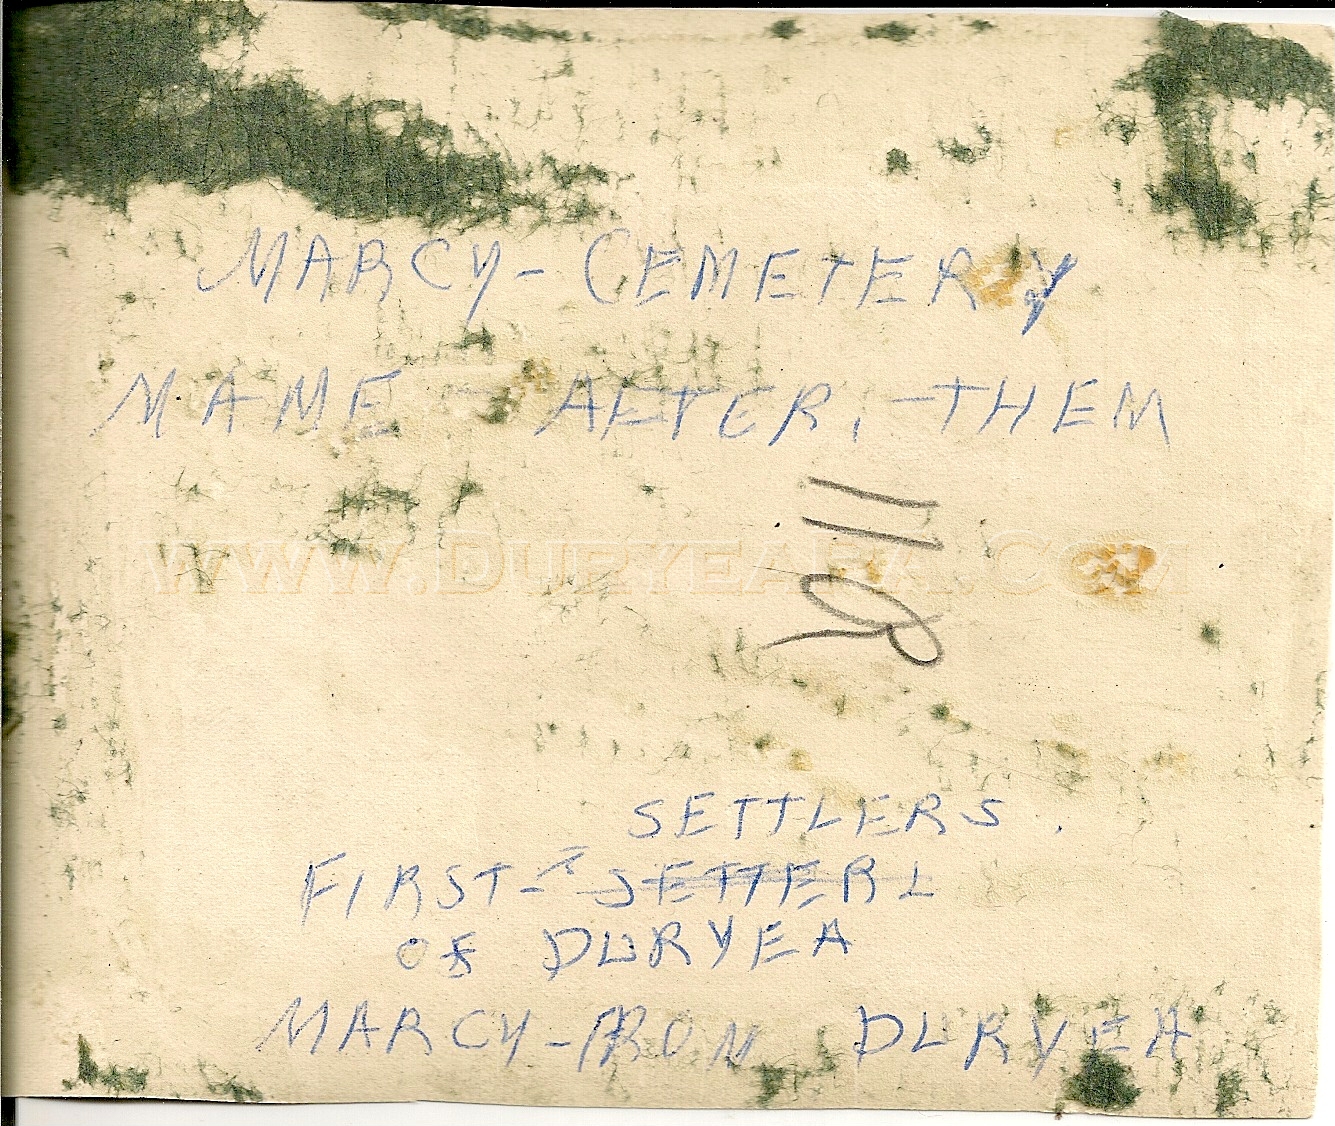 MARCY - CEMETERY
MAME - AFTER, - THEM
11R
WWW.DURYEAPA.COM
SETTLERS.
FIRST - SETTERL
OF DURYEA
MARCY - IRON DURYEA